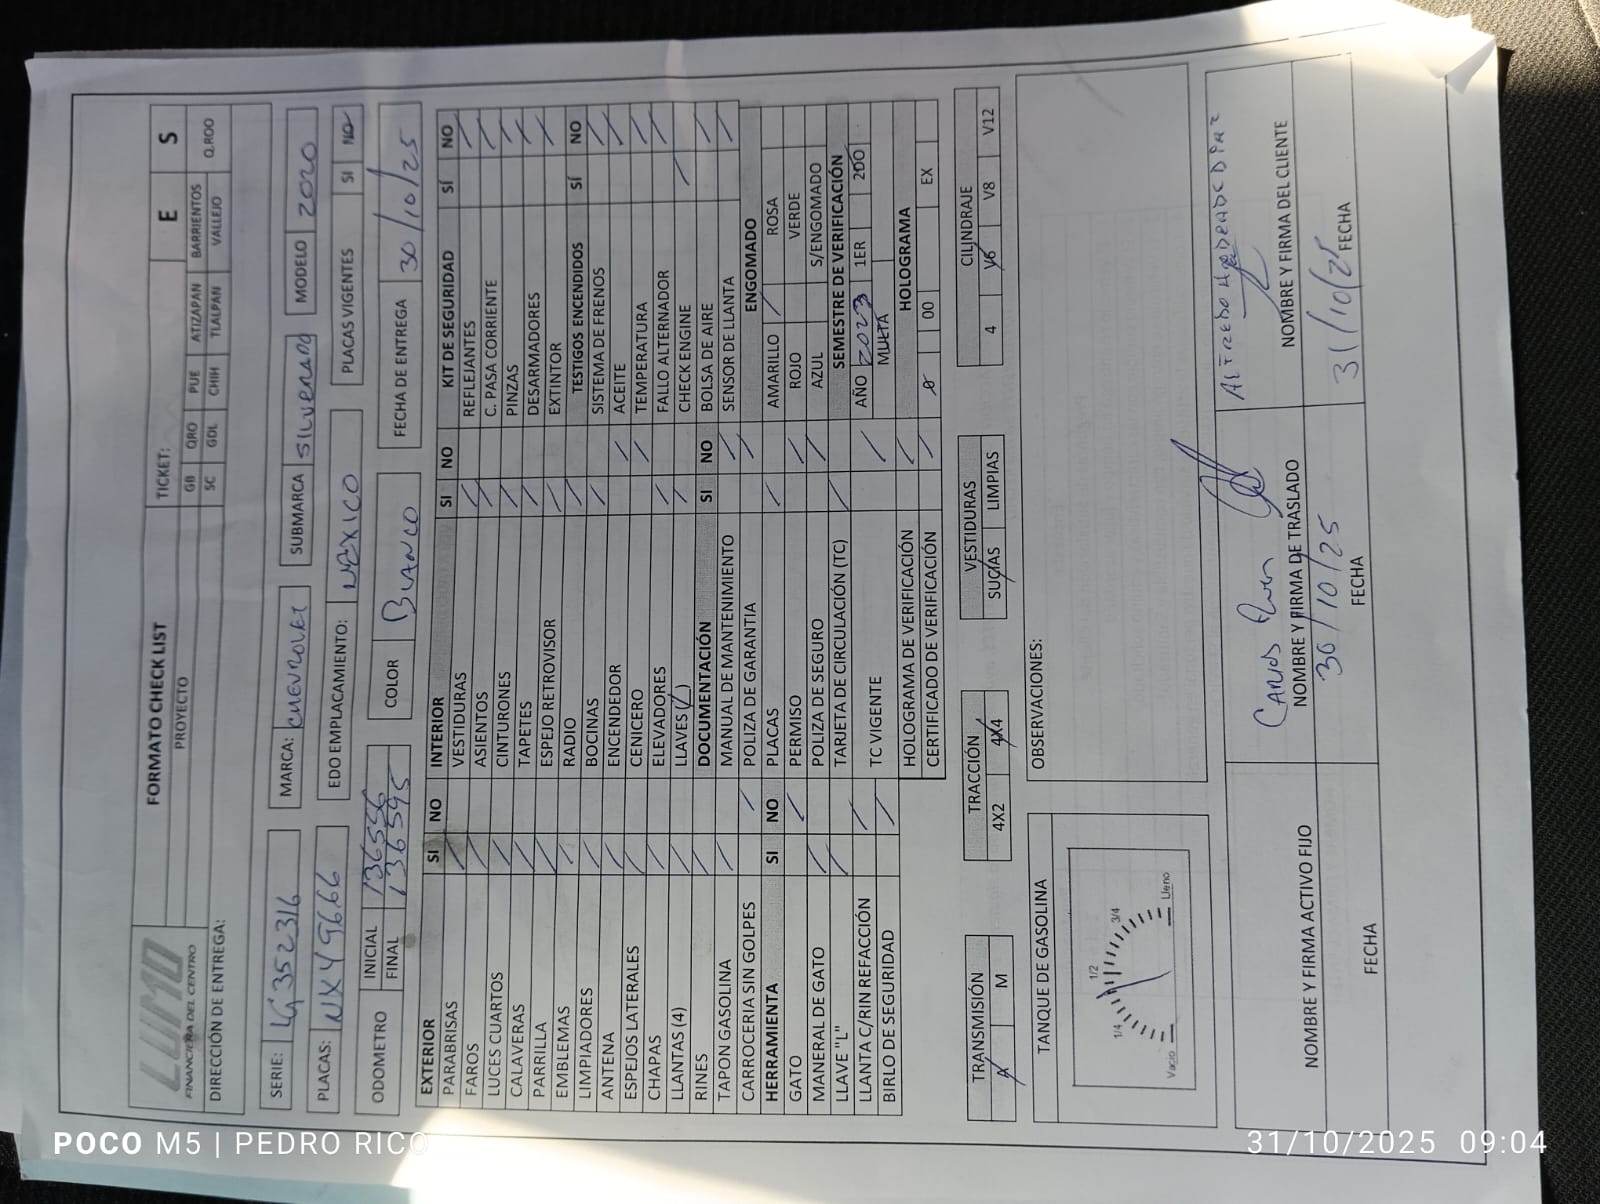 LUMO
FINANCIERA DEL CENTRO
FORMATO CHECK LIST
TICKET:
E S
PROYECTO
GB QRO PUE ATIZAPAN BARRIENTOS
SC GDL CHIH TLALPAN VALLEJO Q.ROO
DIRECCIÓN DE ENTREGA:
SERIE: LG352316 MARCA: CHEVROLET SUBMARCA SILVERADO MODELO 2020
PLACAS: NXY9666 EDO EMPLACAMIENTO: MEXICO PLACAS VIGENTES SI NO
ODOMETRO INICIAL 136556 COLOR BLANCO FECHA DE ENTREGA 30/10/25
FINAL 136595
EXTERIOR SI NO
PARABRISAS /
FAROS /
LUCES CUARTOS /
CALAVERAS /
PARRILLA /
EMBLEMAS /
LIMPIADORES /
ANTENA /
ESPEJOS LATERALES /
CHAPAS /
LLANTAS (4) /
RINES /
TAPON GASOLINA /
CARROCERIA SIN GOLPES /
HERRAMIENTA SI NO
GATO /
MANERAL DE GATO /
LLAVE "L" /
LLANTA C/RIN REFACCIÓN /
BIRLO DE SEGURIDAD /
INTERIOR SI NO
VESTIDURAS /
ASIENTOS /
CINTURONES /
TAPETES /
ESPEJO RETROVISOR /
RADIO /
BOCINAS /
ENCENDEDOR /
CENICERO /
ELEVADORES /
LLAVES ( ) /
DOCUMENTACIÓN SI NO
MANUAL DE MANTENIMIENTO /
POLIZA DE GARANTIA /
PLACAS /
PERMISO /
POLIZA DE SEGURO /
TARJETA DE CIRCULACIÓN (TC) /
TC VIGENTE /
HOLOGRAMA DE VERIFICACIÓN /
CERTIFICADO DE VERIFICACIÓN /
KIT DE SEGURIDAD SÍ NO
REFLEJANTES /
C. PASA CORRIENTE /
PINZAS /
DESARMADORES /
EXTINTOR /
TESTIGOS ENCENDIDOS SÍ NO
SISTEMA DE FRENOS /
ACEITE /
TEMPERATURA /
FALLO ALTERNADOR /
CHECK ENGINE /
BOLSA DE AIRE /
SENSOR DE LLANTA /
ENGOMADO
AMARILLO / ROSA
ROJO VERDE
AZUL S/ENGOMADO
SEMESTRE DE VERIFICACIÓN
AÑO 2023 1ER 2DO
MULTA
HOLOGRAMA
0 00 EX
TRANSMISIÓN
A M
TRACCIÓN
4X2 4X4
VESTIDURAS
SUCIAS LIMPIAS
CILINDRAJE
4 V6 V8 V12
TANQUE DE GASOLINA
Vacio 1/4 1/2 3/4 Lleno
OBSERVACIONES:
NOMBRE Y FIRMA ACTIVO FIJO
FECHA
CARLOS
NOMBRE Y FIRMA DE TRASLADO
30/10/25
FECHA
NOMBRE Y FIRMA DEL CLIENTE
31/10/25
FECHA
POCO M5 | PEDRO RICO
31/10/2025 09:04